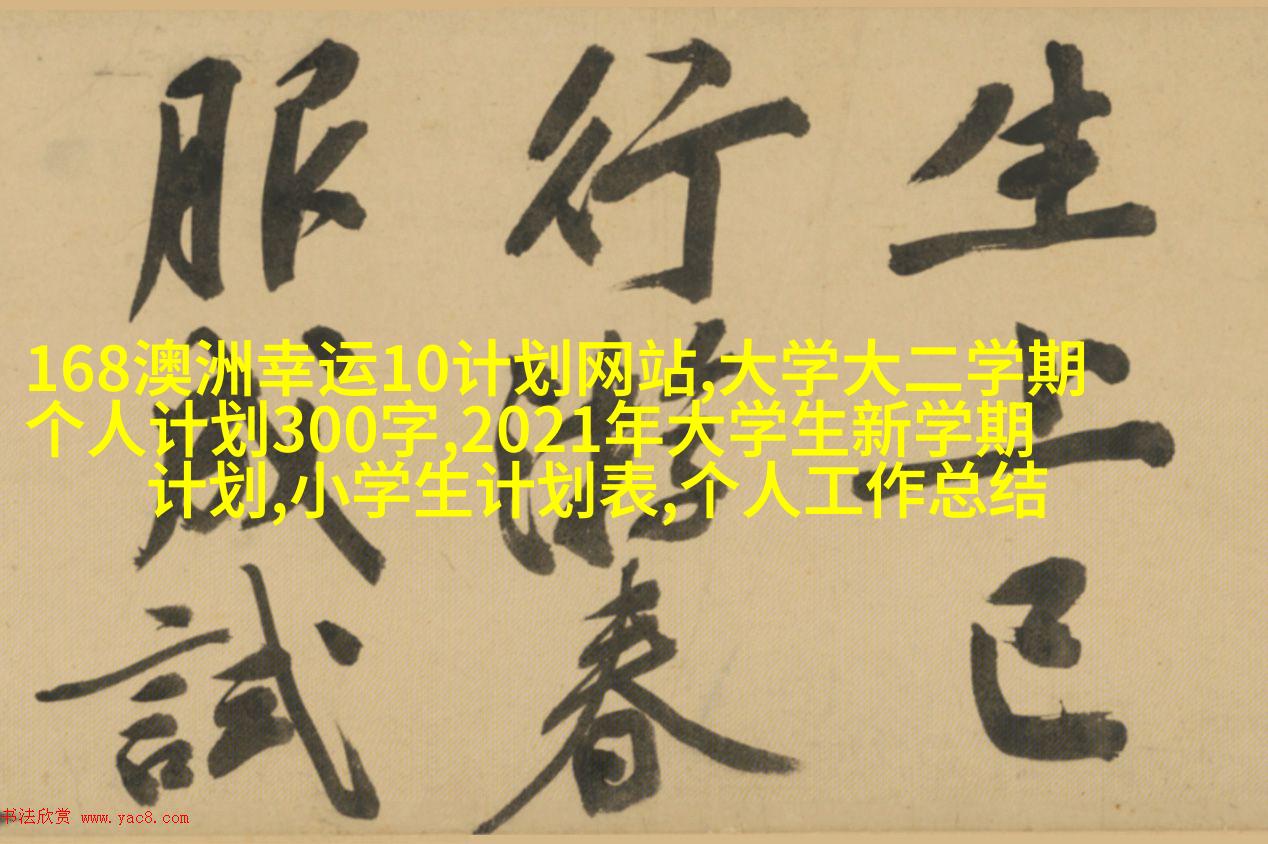 生上巳
行春
服成試
168澳洲幸运10计划网站,大学大二学期
个人计划300字,2021年大学生新学期
计划,小学生计划表,个人工作总结
书法欣赏 www.yac8.com